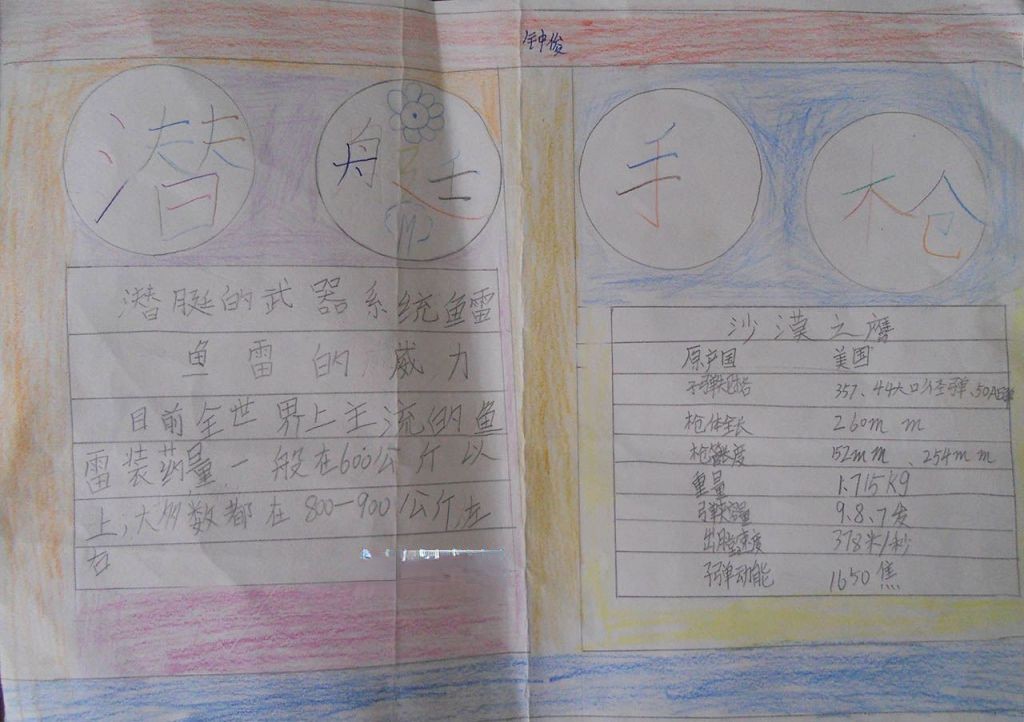 潜艇
手枪
潜艇的武器系统鱼雷
鱼雷的威力
目前全世界上主流的鱼
雷装药量一般在600公斤以
上,大多数都在800-900公斤左
右
沙漠之鹰
原产国 美国
子弹 357、44大口径弹、50AE弹
枪体全长 260mm
152mm、254mm
重量 1.715kg
弹容量 9.8.7发
出膛速度 378米/秒
子弹动能 1650焦